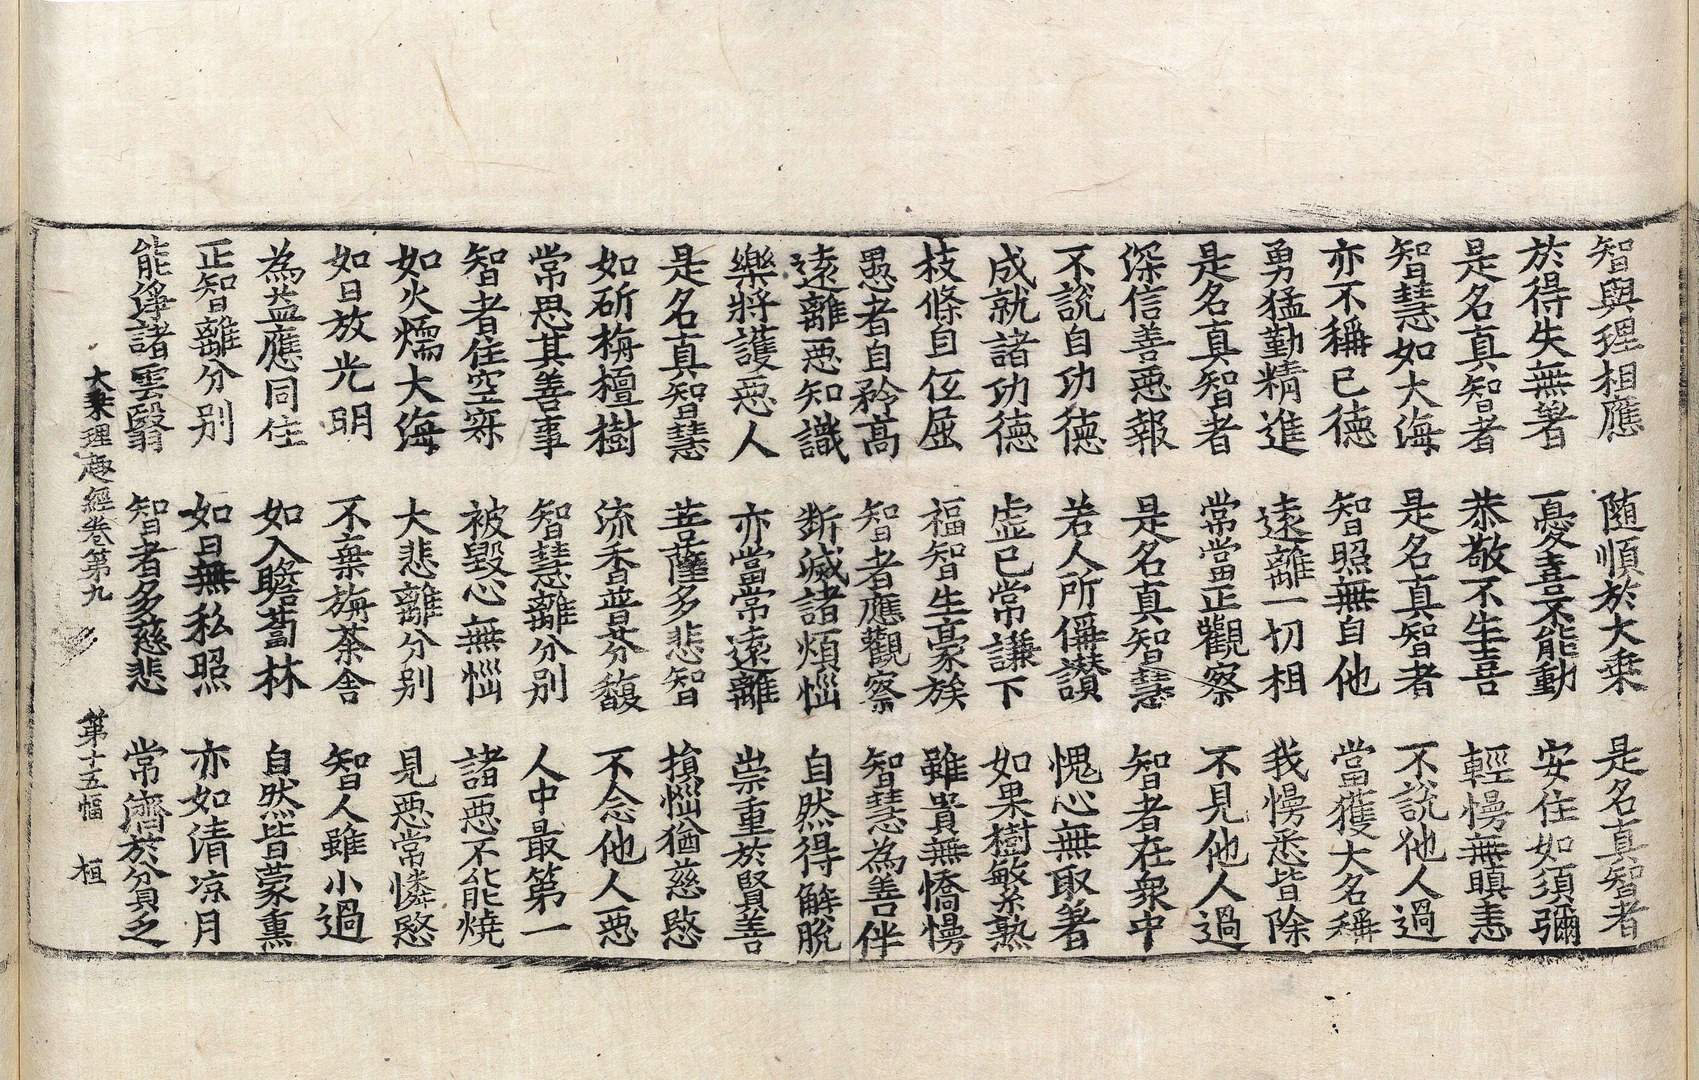 智與理相應　随順於大乗　是名真智者
於得失無著　憂喜不能動　安住如須彌
是名真智者　恭敬不生喜　輕慢無瞋恚
智慧如大海　是名真智者　不說他人過
亦不稱已德　智照無自他　當獲大名稱
勇猛勤精進　遠離一切相　我慢悉皆除
是名真智者　常當正觀察　不見他人過
深信善惡報　是名真智慧　智者在衆中
不說自功德　若人所偁讃　愧心無取著
成就諸功德　虚已常謙下　如果樹敏熟
枝條自伍屈　福智生豪族　雖貴無憍慢
愚者自矜髙　智者應觀察　智慧為善伴
遠離惡知識　斷滅諸煩惱　自然得解脫
樂將護惡人　亦當常遠離　崇重於賢善
是名真智慧　菩薩多悲智　損惱猶慈愍
如斫栴檀樹　流香普芬馥　不念他人惡
常思其善事　智慧離分别　人中最第一
智者住空寂　被毀心無惱　諸惡不能燒
如火爇大海　大悲離分别　見惡常憐愍
如日放光明　不棄旃荼舍　智人雖小過
為益應同住　如入瞻蔔林　自然皆蒙熏
正智離分别　如日無私照　亦如清凉月
能淨諸雲翳　智者多慈悲　常濟於貧乏
大乗理趣經卷第九　第十五幅　桓